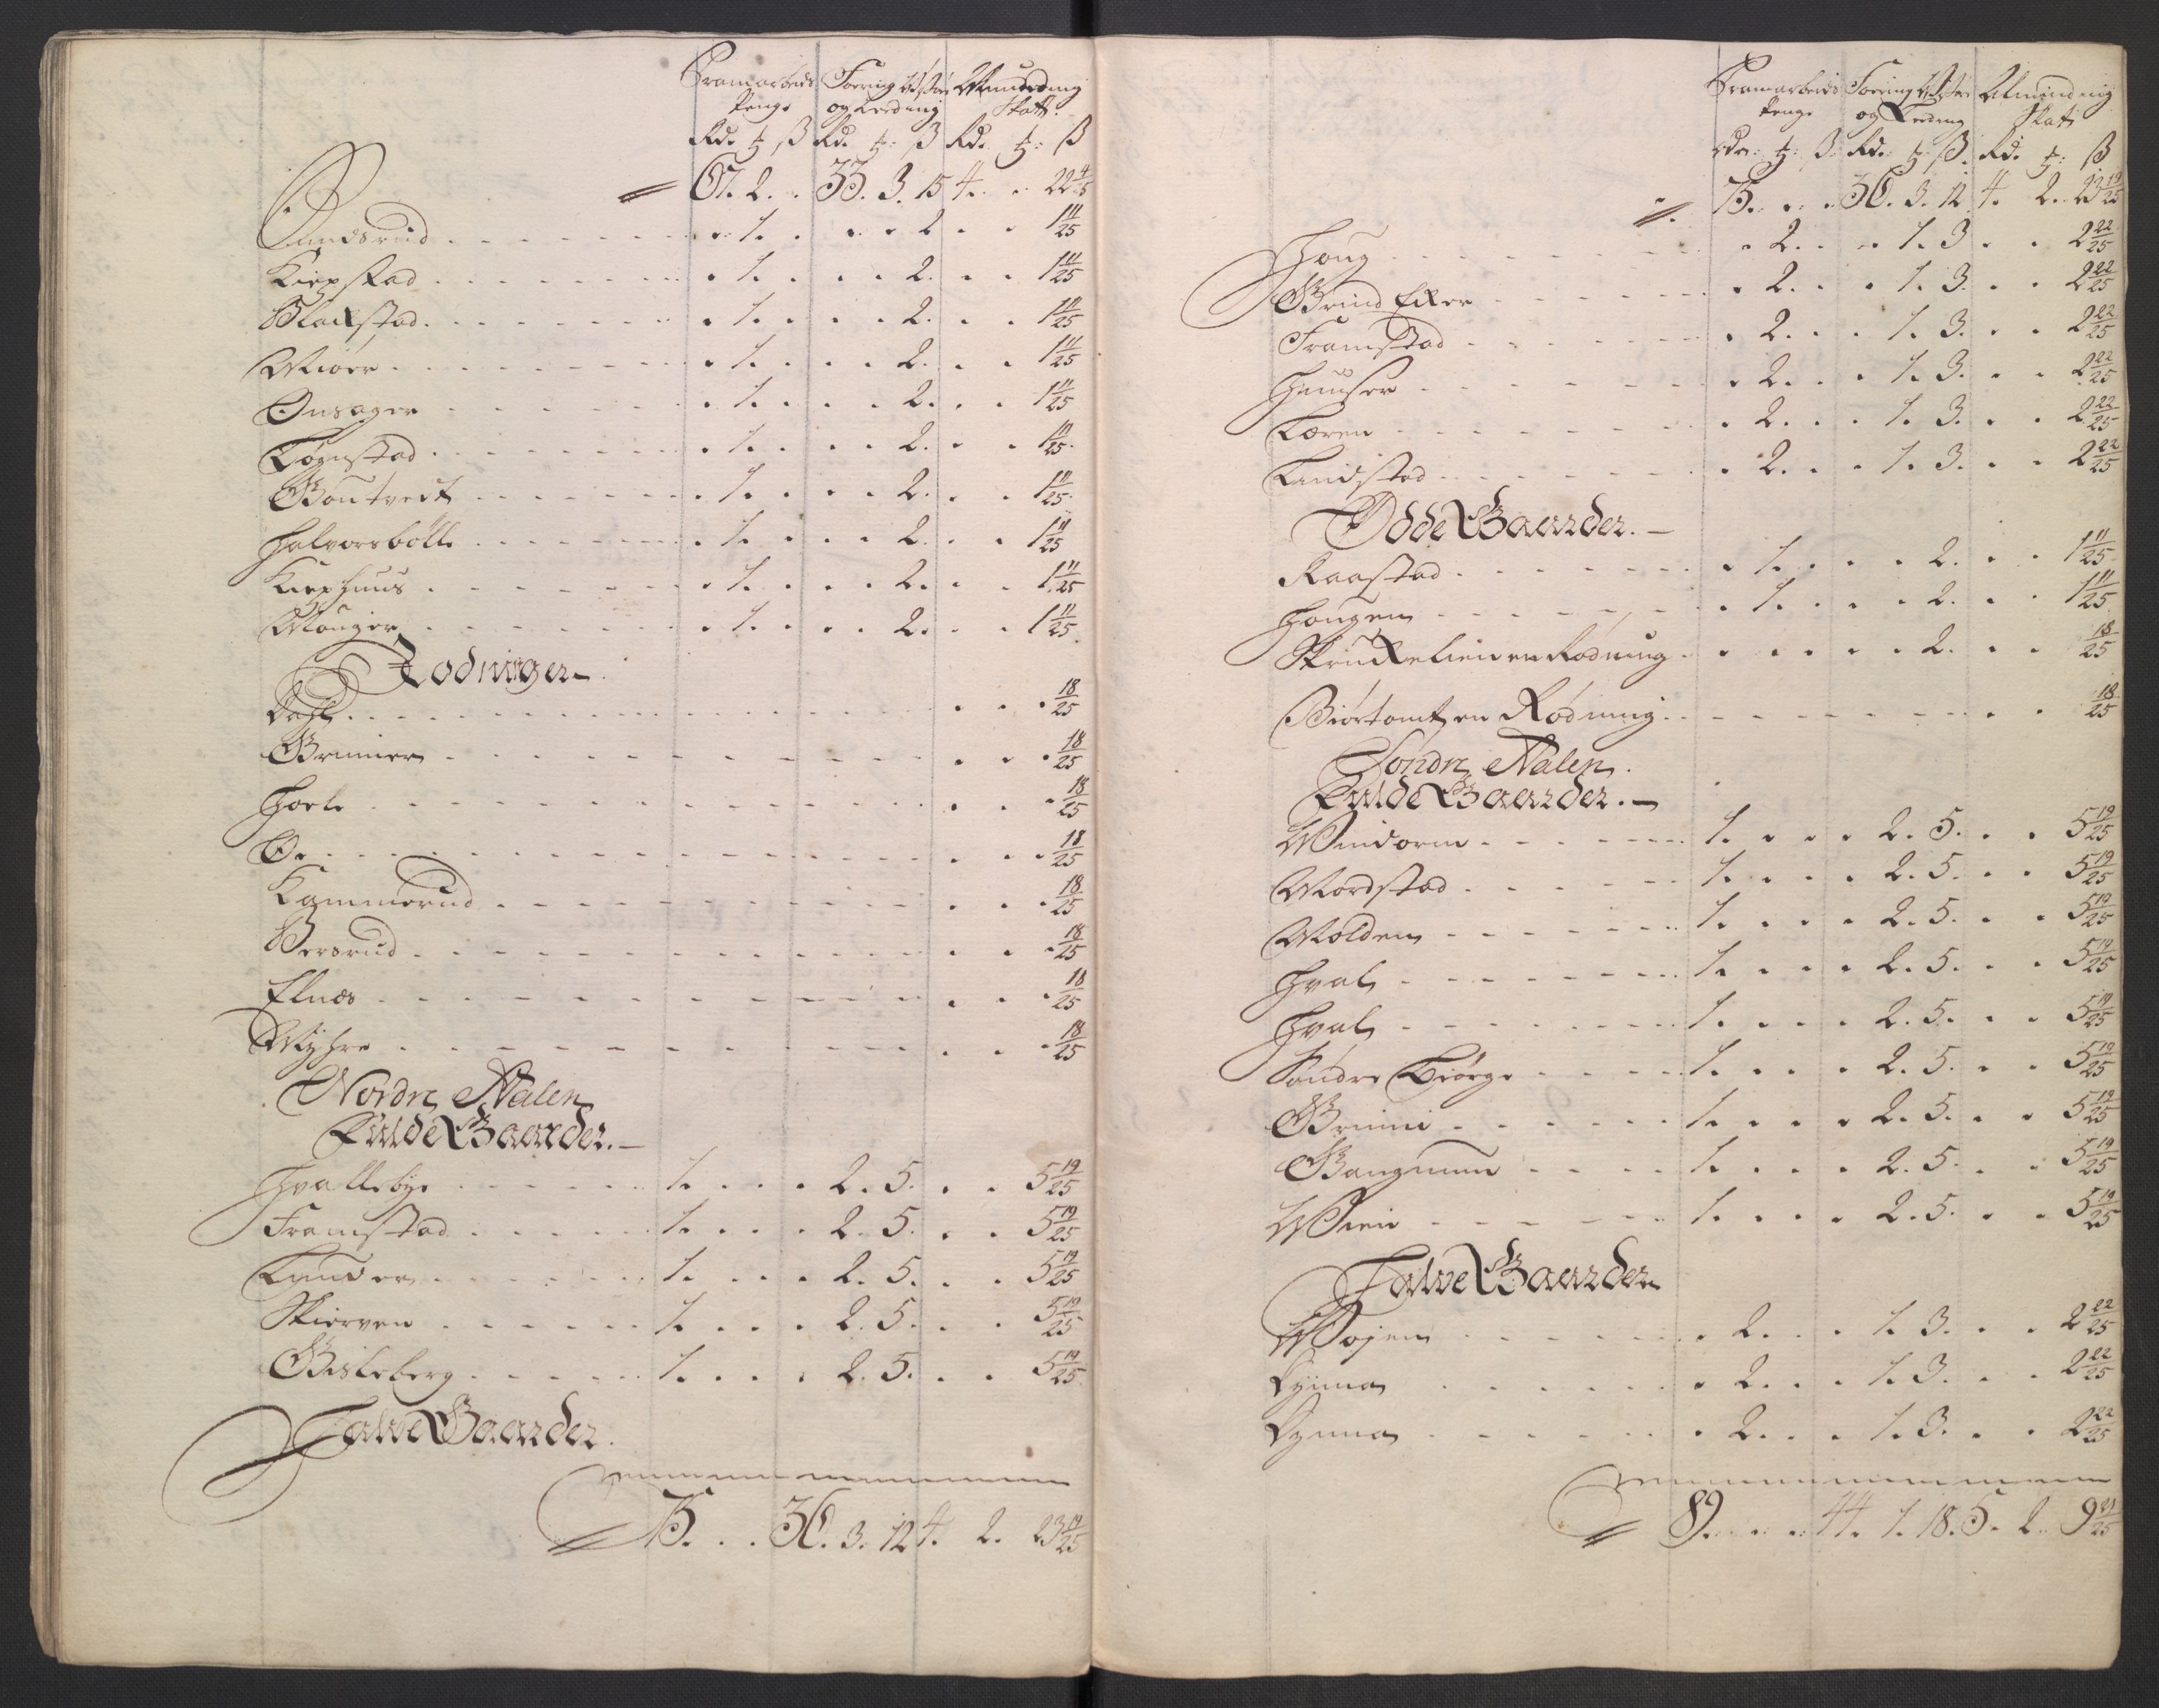 Framarbeids Foering Visøre Allmindning
Penge og Leeding Skatt.
Rd. ʒ ß Rd. ʒ: ß Rd. ʒ: ß
67. 2. . 33. 3. 15 4. . . 22 4/5
Gundsrud . . 1. . . . 2 . . 1 11/25
Kiepstad . . 1. . . . 2. . . 1 11/25
Blakstad . . 1. . . . 2. . . 1 11/25
Mioer . . 1. . . . 2. . . 1 11/25
Onsager . . 1. . . . 2. . . 1 11/25
Tøgnstad . . 1. . . . 2. . . 1 11/25
Goutvedt . . 1. . . . 2. . . 1 11/25
Halvorsbølle . . 1. . . . 2. . . 1 11/25
Kiephuus . . 1. . . . 2. . . 1 11/25
Mouger . . 1. . . . 2. . . 1 11/25
Rødninger
Dahl . . . 18/25
Grinier . . . 18/25
Hoele . . . 18/25
Øe . . . 18/25
Kammerud . . . 18/25
Bersrud . . . 18/25
Elnæs . . . 18/25
Myhre . . . 18/25
Nordre Aalen
Fulde Gaarder.
Hvallebye . . 1. . . . 2. 5. . . 5 19/25
Framstad . . 1. . . . 2. 5. . . 5 19/25
Tunder . . 1. . . . 2. 5. . . 5 19/25
Skierven . . 1. . . . 2. 5. . . 5 19/25
Gisleberg . . 1. . . . 2. 5. . . 5 19/25
Halve Gaarder.
75. . . 36. 3. 12 4. 2. 23 19/25
Framarbeids Foering Visøre Almindning
Penge og Leeding Skatt
Rdr: ʒ: ß. Rd. ʒ: ß. Rd. ʒ: ß
75. . . 36. 3. 12 4. 2. 23 19/25
Houg . . 2. . . 1. 3 . . 2 22/25
Grind Eker . . 2. . . 1. 3. . . 2 22/25
Framstad . . 2. . . 1. 3. . . 2 22/25
Huuser . . 2. . . 1. 3. . . 2 22/25
Tæren . . 2. . . 1. 3. . . 2 22/25
Landstad . . 2. . . 1. 3. . . 2 22/25
Ødde Gaarder.
Raastad . . 1. . . . 2. . . 1 11/25
Hougen . . 1. . . . 2. . . 1 11/25
Skrukelien en Rødning . . . . . 2. . . 18/25
Biørtomt en Rødning . . . 18/25
Søndre Aalen.
Fulde Gaarder.
Windorm . . 1. . . . 2. 5. . . 5 19/25
Mordstad . . 1. . . . 2. 5. . . 5 19/25
Molden . . 1. . . . 2. 5. . . 5 19/25
Hval . . 1. . . . 2. 5. . . 5 19/25
Hval . . 1. . . . 2. 5. . . 5 19/25
Søndre Biørge . . 1. . . . 2. 5. . . 5 19/25
Grinni . . 1. . . . 2. 5. . . 5 19/25
Gangnum . . 1. . . . 2. 5. . . 5 19/25
Wien . . 1. . . . 2. 5. . . 5 19/25
Halve Gaarder
Wøyen . . 2. . . 1. 3. . . 2 22/25
Dynna . . 2. . . 1. 3. . . 2 22/25
Dynna . . 2. . . 1. 3. . . 2 22/25
89. . . . 44. 1. 18. 5. 2. 9 21/25